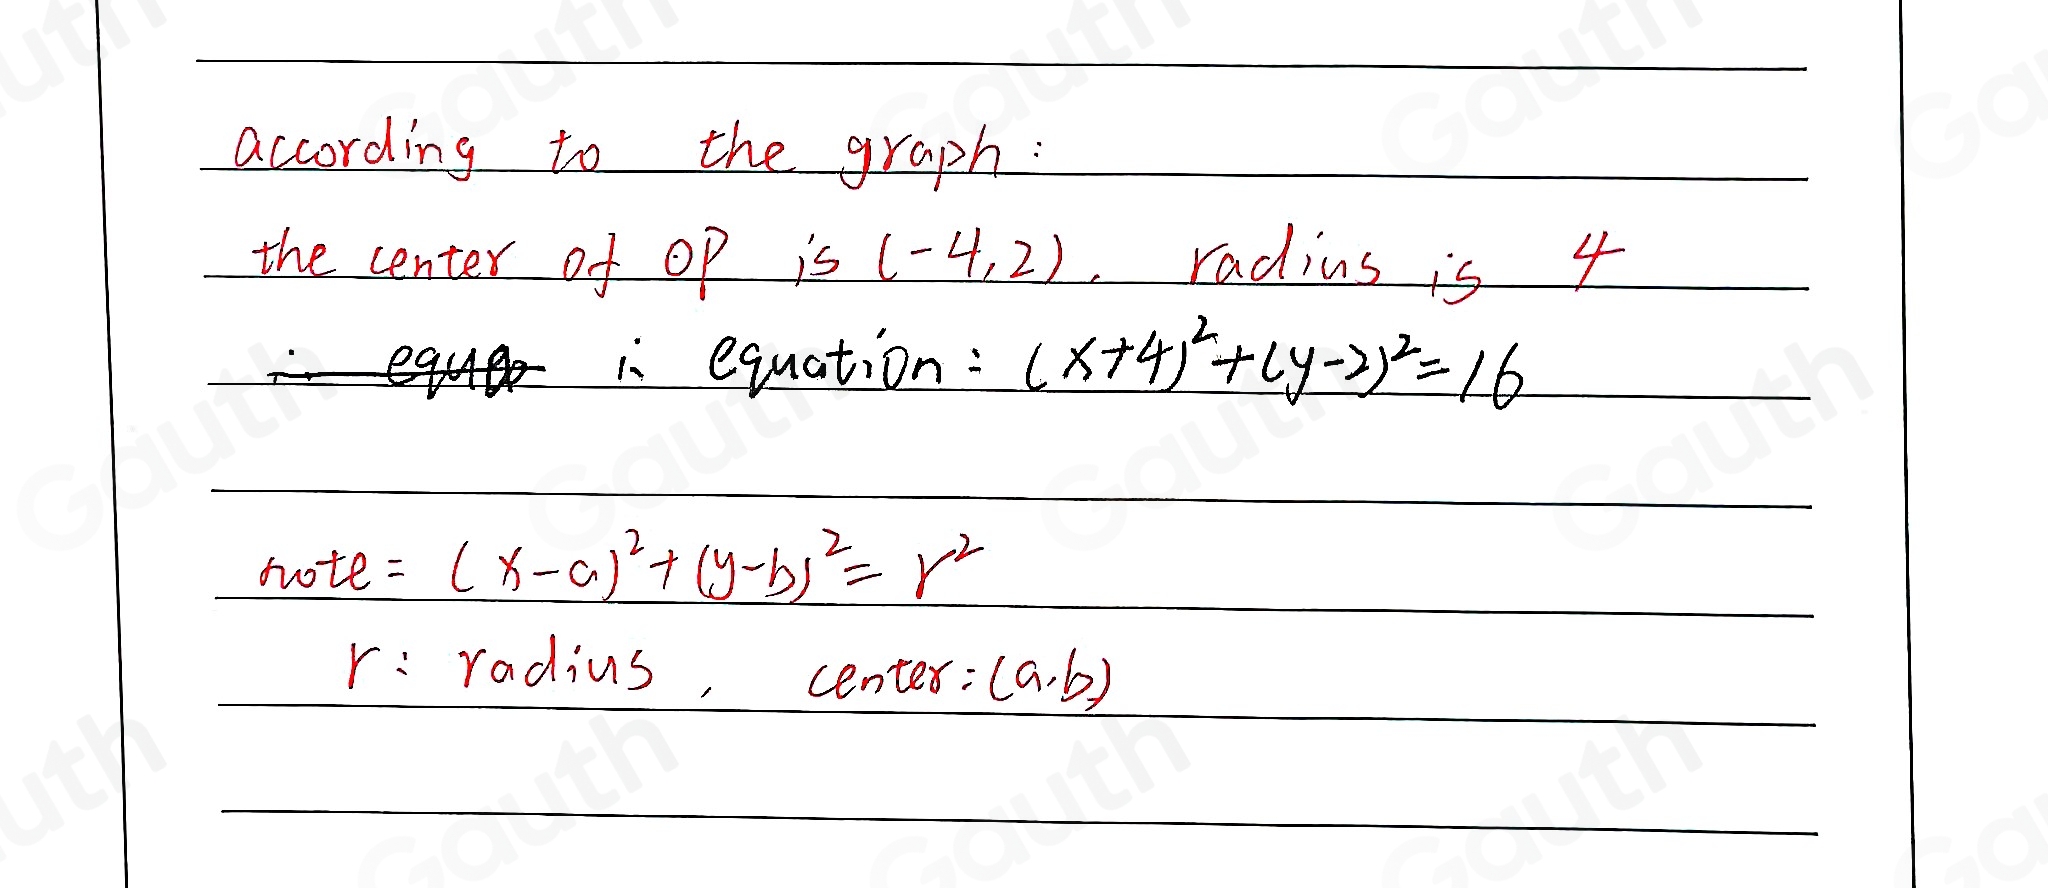 according to the graph:
the center of ⊙P is (-4,2). radius is 4
∴ equation: (x+4)²+(y-2)²=16
note= (x-a)²+(y-b)²= r²
r: radius, center:(a.b)
Gauth